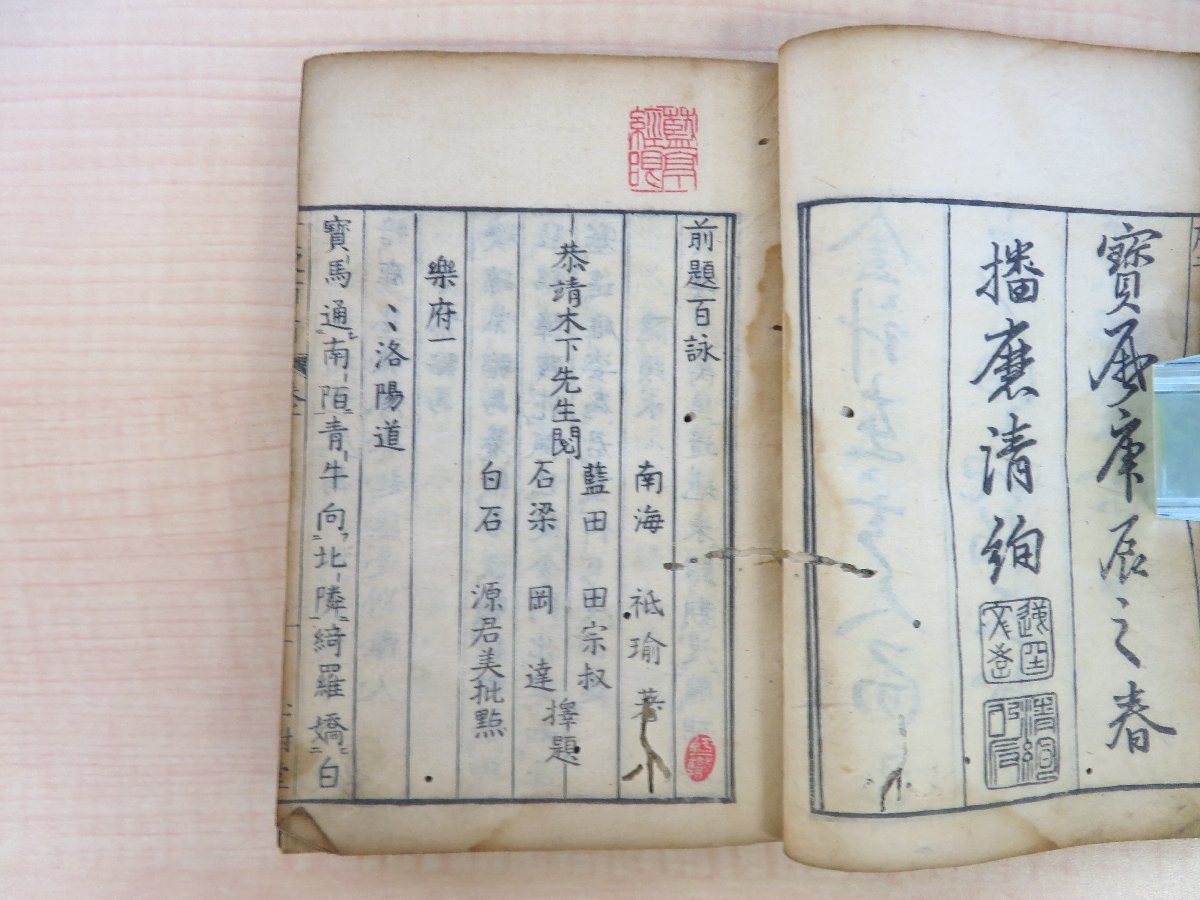 寶曆庚辰之春
播磨清絢
前題百詠
南海 祗瑜 著
藍田 田宗叔
石梁 岡 達 擇題
恭靖木下先生閱
白石 源君美批點
樂府一
洛陽道
寶馬通南陌青牛向北隣綺羅嬌白
藍亭經眼